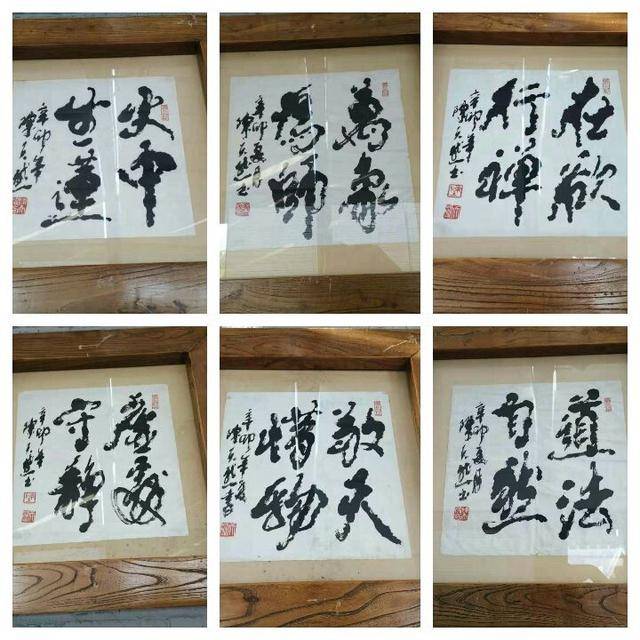 火中
生蓮
辛卯年
陳天然書
萬象
為師
辛卯夏月
陳天然書
在欲
行禪
辛卯年
陳天然書
守靜
辛卯年
陳天然書
敬天
惜物
辛卯年夏
陳天然書
法
自然
辛卯夏月
陳天然書